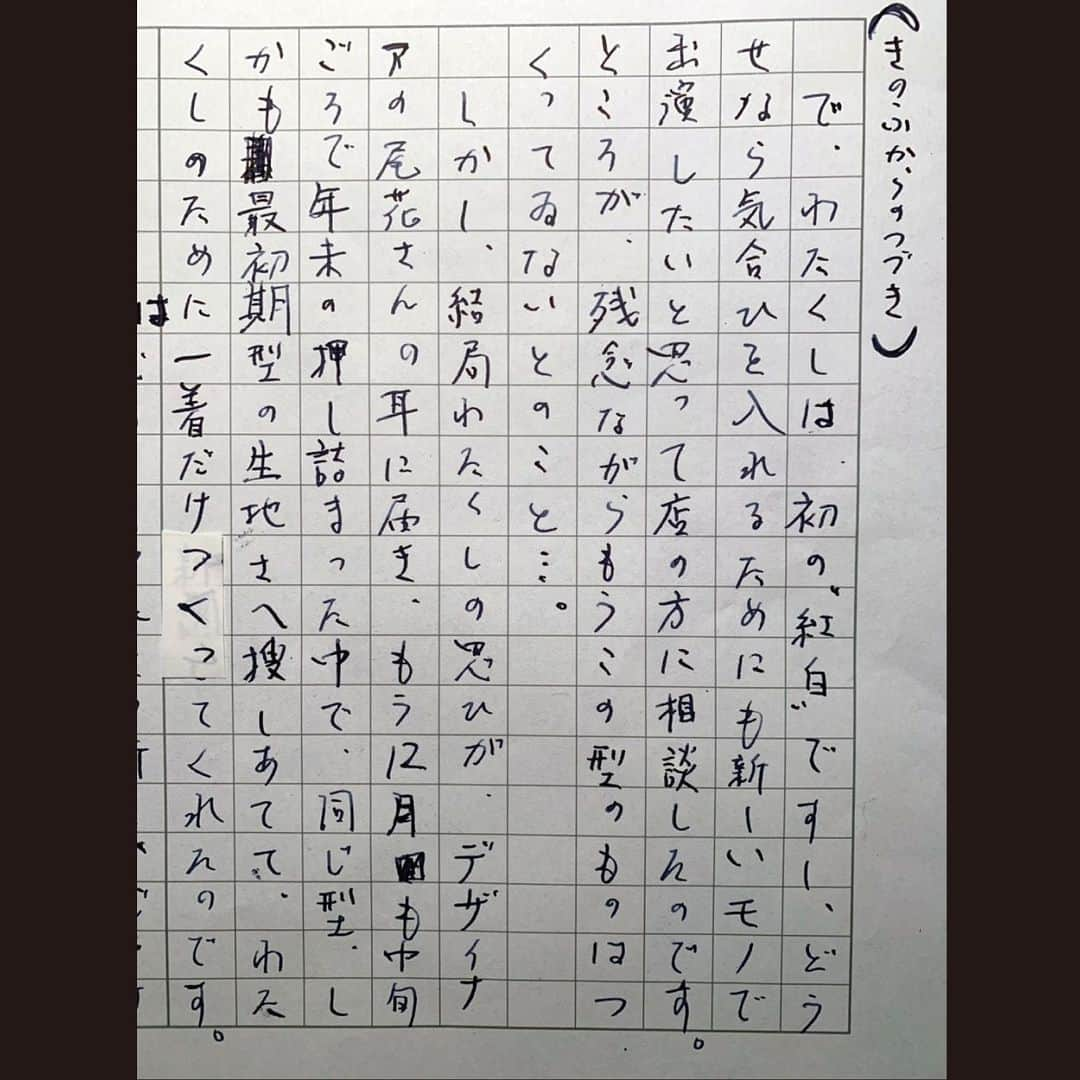 （きのふからのつづき）
で、わたくしは、初の”紅白”ですし、どう
せなら気合ひを入れるためにも新しいモノで
出演したいと思って店の方に相談したのです。
ところが、残念ながらもうこの型のものはつ
くってゐないとのこと…。
しかし、結局わたくしの思ひが、デザイナ
アの尾花さんの耳に届き、もう12月も中旬
ごろで年末の押し詰まった中で、同じ型、し
かも最初期型の生地さへ捜しあてて、わた
くしのために一着だけつくってくれたのです。
は